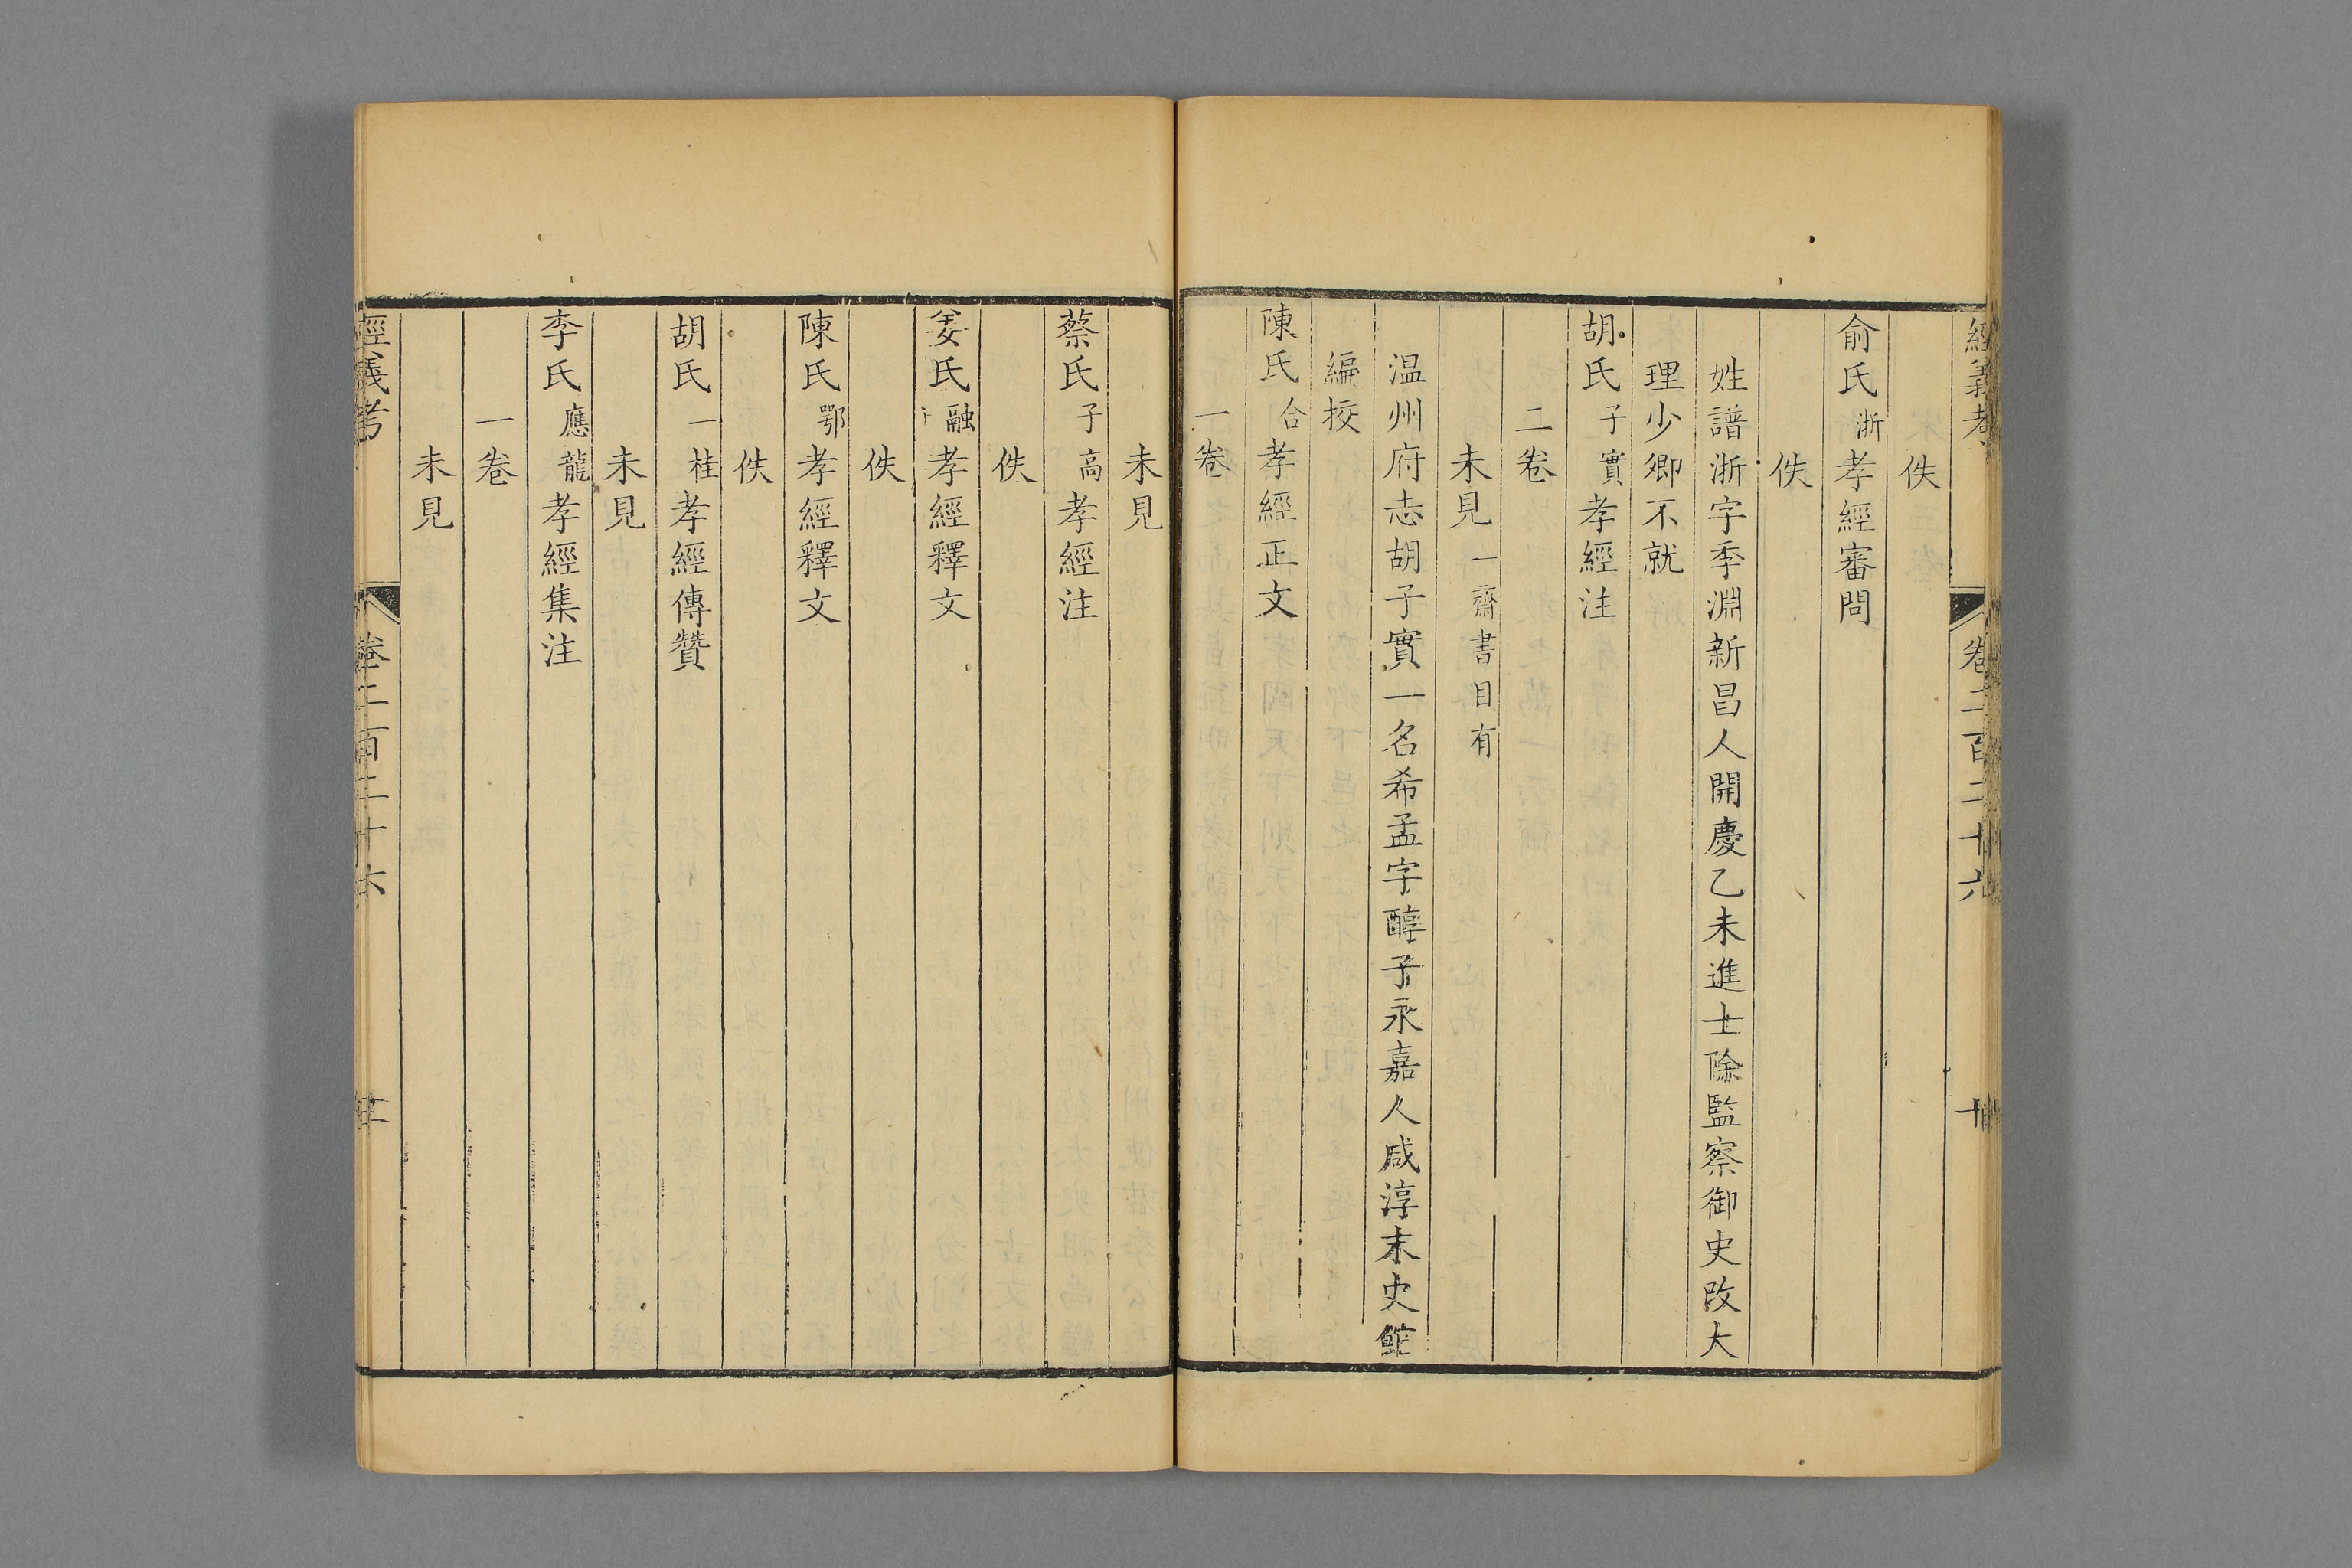 經義考 卷二百二十六 十
佚
俞氏浙孝經審問
佚
姓譜浙字季淵新昌人開慶乙未進士除監察御史改大
理少卿不就
胡氏子實孝經注
二卷
未見一齋書目有
温州府志胡子實一名希孟字醇子永嘉人咸淳末史館
編挍
陳氏合孝經正文
一卷
未見
蔡氏子高孝經注
佚
姜氏融孝經釋文
佚
陳氏鄂孝經釋文
佚
胡氏一桂孝經傳贊
未見
李氏應龍孝經集注
一卷
未見
經義考 卷二百二十六